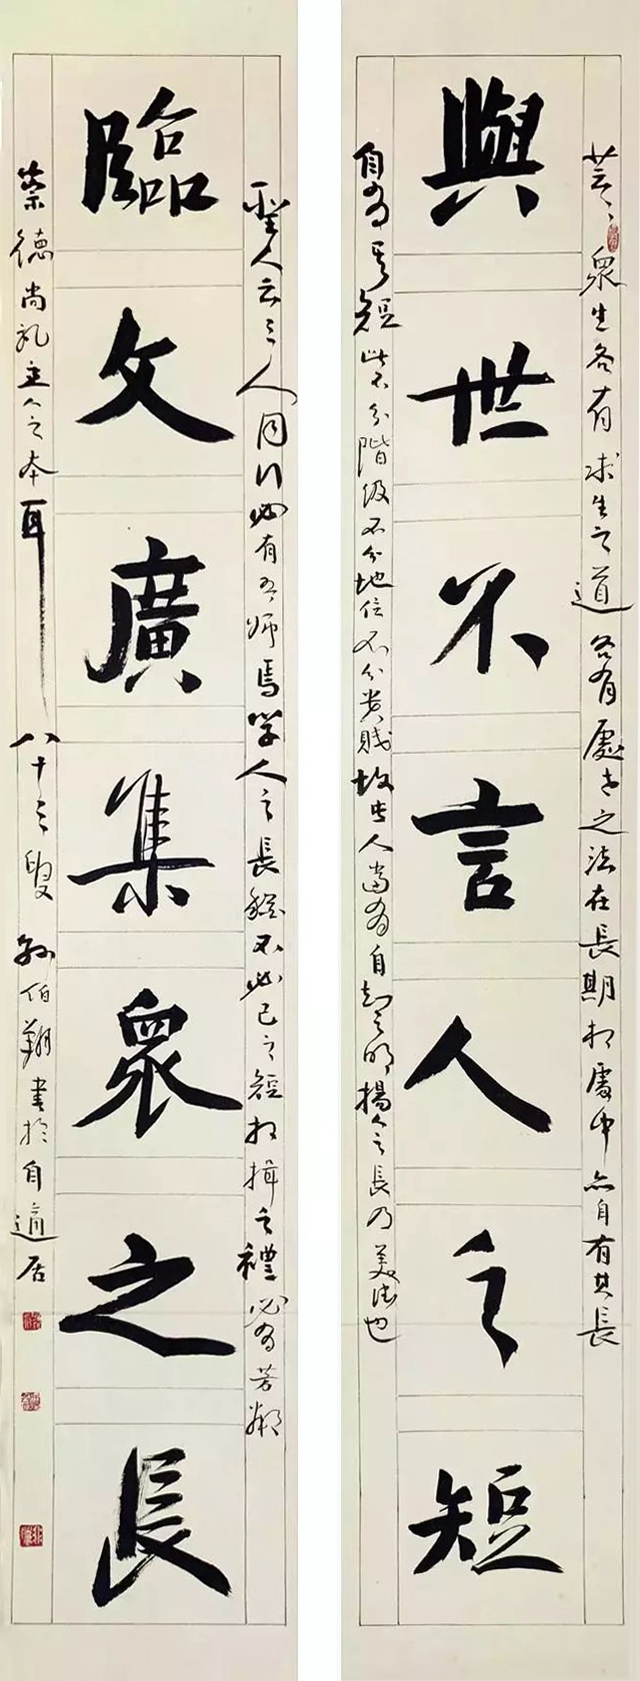 與世不言人之短
芸々眾生各有求生之道各有處世之法在長期相處中亦自有其長
自有其短此不分階級不分地位不分貴賤故世人當有自知之明揚人之長乃美德也
臨文廣集眾之長
聖人云三人同行必有吾師焉學人之長
不必己之短相揖之禮必有芳鄰
崇德尚禮主人之本耳
八十三叟孫伯翔書於自適居